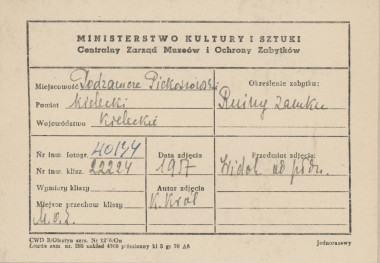 MINISTERSTWO KULTURY I SZTUKI
Centralny Zarząd Muzeów i Ochrony Zabytków
Miejscowość Podzamcze Piekoszowski
Powiat kielecki
Województwo kieleckie
Określenie zabytku:
Ruiny zamku
Nr inw. fotogr. 40134
Nr inw. klisz. 22224
Wymiary kliszy
Miejsce przechow. kliszy
Data zdjęcia
1957
Autor zdjęcia
K. Król
Przedmiot zdjęcia:
Widok od płdn.
CWD Jednorazowy